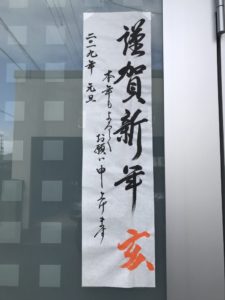 謹賀新年
亥
本年もよろしく
お願い申し上げます
二〇一九年 元旦